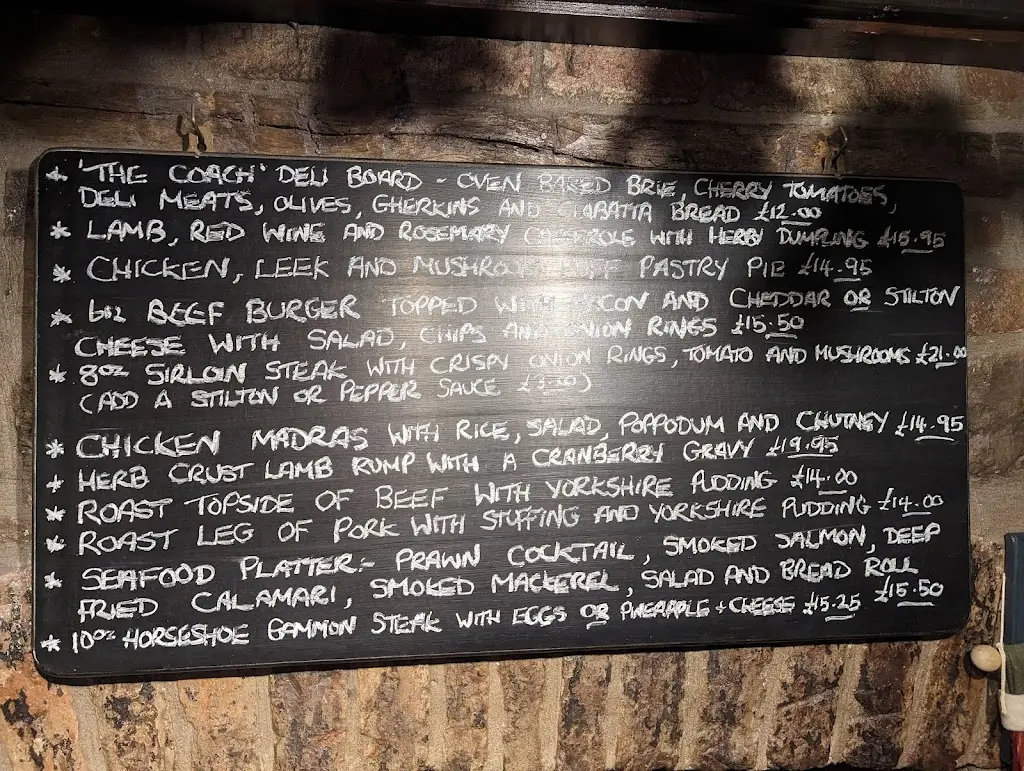 * 'THE COACH' DELI BOARD - OVEN BAKED BRIE, CHERRY TOMATOES,
DELI MEATS, OLIVES, GHERKINS AND CIABATTA BREAD £12.00
* LAMB, RED WINE AND ROSEMARY CASSEROLE WITH HERBY DUMPLING £15.95
* CHICKEN, LEEK AND MUSHROOM PUFF PASTRY PIE £14.95
* 6oz BEEF BURGER TOPPED WITH BACON AND CHEDDAR OR STILTON
CHEESE WITH SALAD, CHIPS AND ONION RINGS £15.50
* 8oz SIRLOIN STEAK WITH CRISPY ONION RINGS, TOMATO AND MUSHROOMS £21.00
(ADD A STILTON OR PEPPER SAUCE
* CHICKEN MADRAS WITH RICE, SALAD, POPPODUM AND CHUTNEY £14.95
* HERB CRUST LAMB RUMP WITH A CRANBERRY GRAVY £19.95
* ROAST TOPSIDE OF BEEF WITH YORKSHIRE PUDDING £14.00
* ROAST LEG OF PORK WITH STUFFING AND YORKSHIRE PUDDING £14.00
* SEAFOOD PLATTER:- PRAWN COCKTAIL, SMOKED SALMON, DEEP
FRIED CALAMARI, SMOKED MACKEREL, SALAD AND BREAD ROLL £15.50
* 10oz HORSESHOE GAMMON STEAK WITH EGGS OR PINEAPPLE + CHEESE £15.25